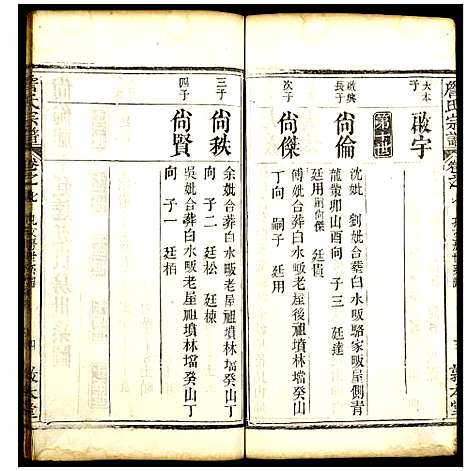 大本
子
啟宇
第十世
啟興
長子
尙倫
沈妣 劉妣合葬白水畈駱家畈屋側青
龍嶺卯山酉向 子三 廷達
廷用嗣尙傑 廷貴
次子
尙傑
傅妣合葬白水畈老屋後祖墳林壋癸山
丁向 嗣子 廷用
三子
尙秩
余妣合葬白水畈老屋祖墳林壋癸山丁
向 子二 廷松 廷棟
四子
尙賢
吳妣合葬白水畈老屋祖墳林壋癸山丁
向 子一 廷栢
詹氏宗譜
卷之七
四
敦本堂